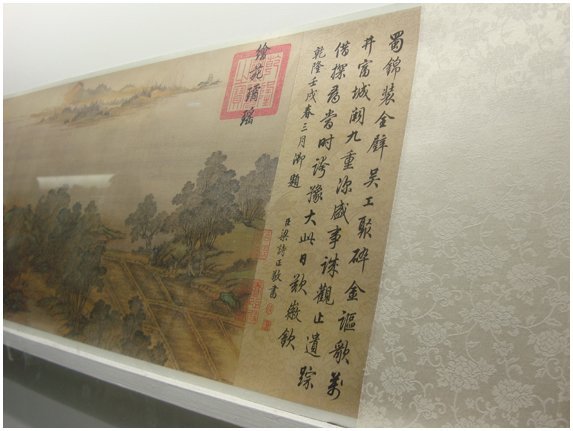 蜀錦裝金壁吳工聚碎金謳歌萬
井富城闕九重深盛事誠觀止遺踪
借探尋當時誇豫大此日歎徽欽
乾隆壬戌春三月御題
臣梁詩正敬書
繪苑璚瑤